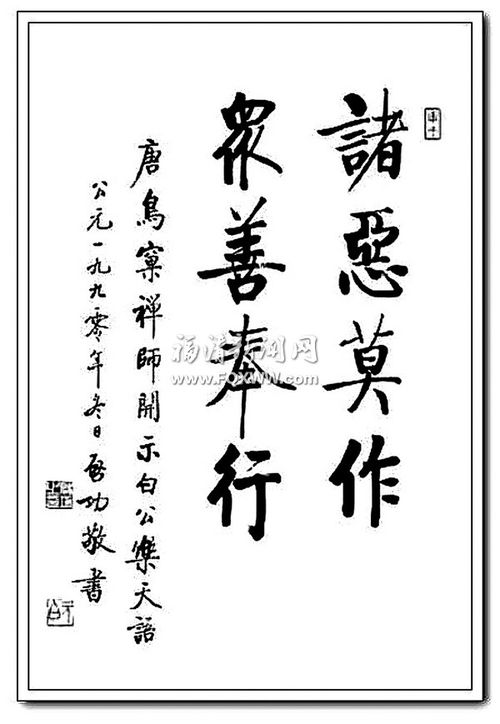 諸惡莫作
眾善奉行
唐鳥窠禅師開示白公樂天語
公元一九九零年冬日啓功敬書
福清新闻网
www.FQXWW.COM